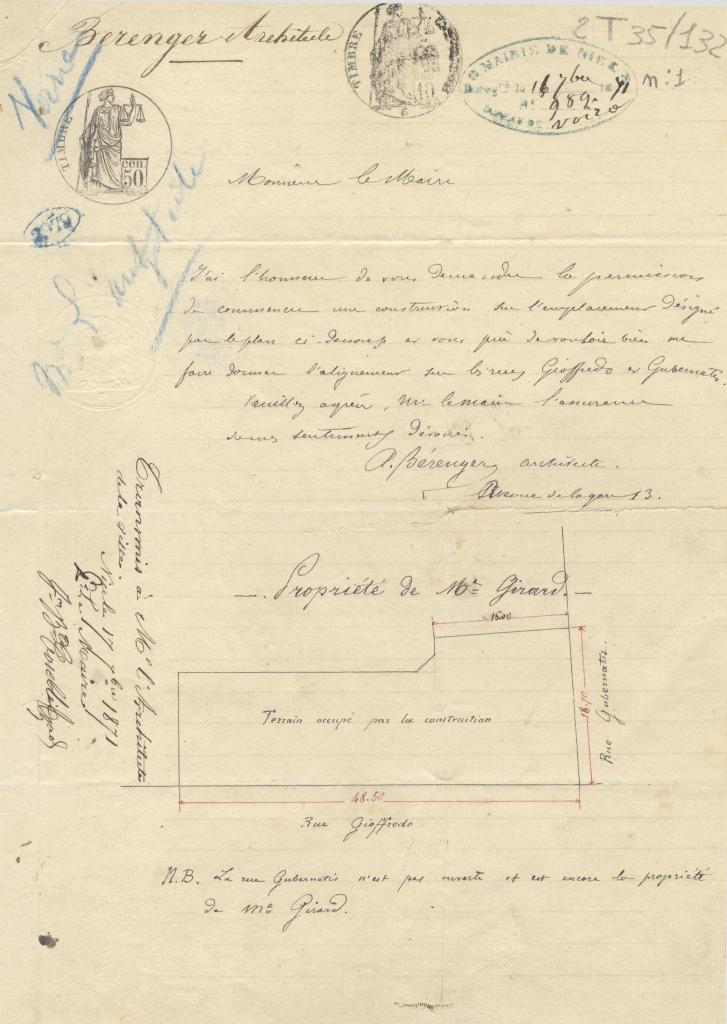 Bérenger Architecte
2 T 35/132
n:1
MAIRIE DE NICE
16 7bre 71
N° 989
voirie
TIMBRE
10
TIMBRE
50 cen
2070
Verne
Mr L'architecte
Monsieur le Maire
J'ai l'honneur de vous demander la permission
de commencer une construction sur l'emplacement désigné
par le plan ci-dessous et vous prie de vouloir bien me
faire donner l'alignement sur les rues Gioffredo et Gubernatis.
Veuillez agréer, Mr le maire l'assurance
de mes sentiments dévoués.
A. Bérenger architecte.
Avenue de la gare 13.
Transmis à Mr l'Architecte
de la ville.
Nice le 17 7bre 1871
Le Maire
Propriété de Mr Girard.
15.00
Terrain occupé par la construction
18.70
Rue Gubernatis.
48.50
Rue Gioffredo
N.B. La rue Gubernatis n'est pas ouverte et est encore la propriété
de Mr Girard.